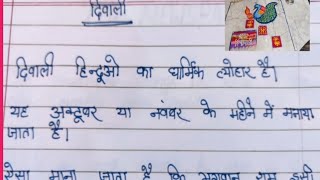 दिवाली
दिवाली हिन्दूओ का धार्मिक त्योहार है।
यह अक्टूबर या नवंबर के महीने में मनाया
जाता है।
ऐसा माना जाता है कि भगवान राम इसी